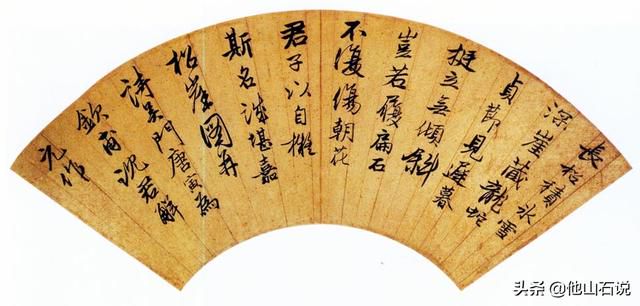 長松積氷雪
深崖藏龍蛇
貞節見歲暮
挺立無傾斜
豈若履扁石
不復傷朝花
君子以自擬
斯名誠堪嘉
松崖圖并
詩吴門唐寅為
欽甫沈君解
元作
头条 @他山石说